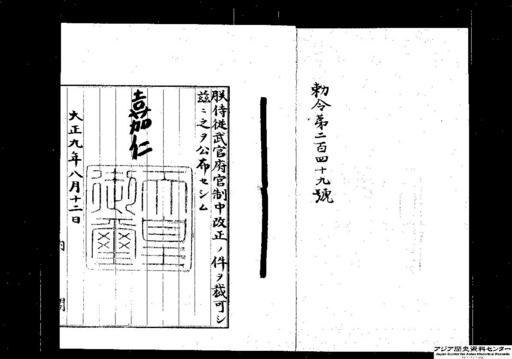 勅令第二百四十九號
朕侍從武官府官制中改正ノ件ヲ裁可シ
茲ニ之ヲ公布セシム
嘉仁
天皇御璽
大正九年八月十二日
内閣
アジア歴史資料センター
Japan Center for Asian Historical Records